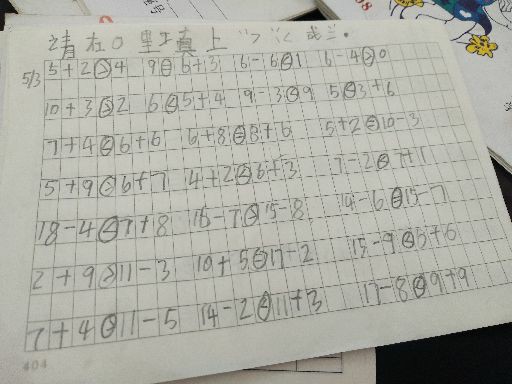 請在○里填上">""<"或=。
5/3
5+2>4 9=6+3 6-6<1 6-4>0
10+3>2 6<5+4 9-3<9 5<3+6
7+4<6+6 6+8=8+6 5+2=10-3
5+9>6+7 4+2<6+3 7-2<7+1
18-4<7+8 16-7>15-8 14-6=15-7
2+9>11-3 10+5=17-2 15-9<5+6
7+4>11-5 14-2<11+3 17-8<9+9
404